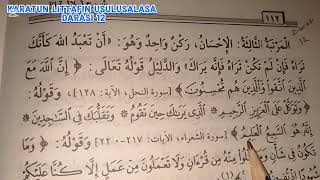 KARATUN LITTAFIN USULUSALASA
DARASI 12
١١٢
الْمَرْتَبَةُ الثَّالِثَةُ: الْإِحْسَانُ، رُكْنٌ وَاحِدٌ وَهُوَ: «أَنْ تَعْبُدَ اللَّهَ كَأَنَّكَ
تَرَاهُ فَإِنْ لَمْ تَكُنْ تَرَاهُ فَإِنَّهُ يَرَاكَ» وَالدَّلِيلُ قَوْلُهُ تَعَالَى: ﴿إِنَّ اللَّهَ مَعَ
الَّذِينَ اتَّقَوْا وَالَّذِينَ هُمْ مُحْسِنُونَ﴾ [سورة النحل، الآية: ١٢٨]، وَقَوْلُهُ:
﴿وَتَوَكَّلْ عَلَى الْعَزِيزِ الرَّحِيمِ الَّذِي يَرَاكَ حِينَ تَقُومُ وَتَقَلُّبَكَ فِي السَّاجِدِينَ
إِنَّهُ هُوَ السَّمِيعُ الْعَلِيمُ﴾ [سورة الشعراء، الآيات: ٢١٧-٢٢٠] وَقَوْلُهُ: ﴿وَمَا
تَكُونُ فِي شَأْنٍ وَمَا تَتْلُو مِنْهُ مِنْ قُرْآنٍ وَلَا تَعْمَلُونَ مِنْ عَمَلٍ إِلَّا كُنَّا عَلَيْكُمْ